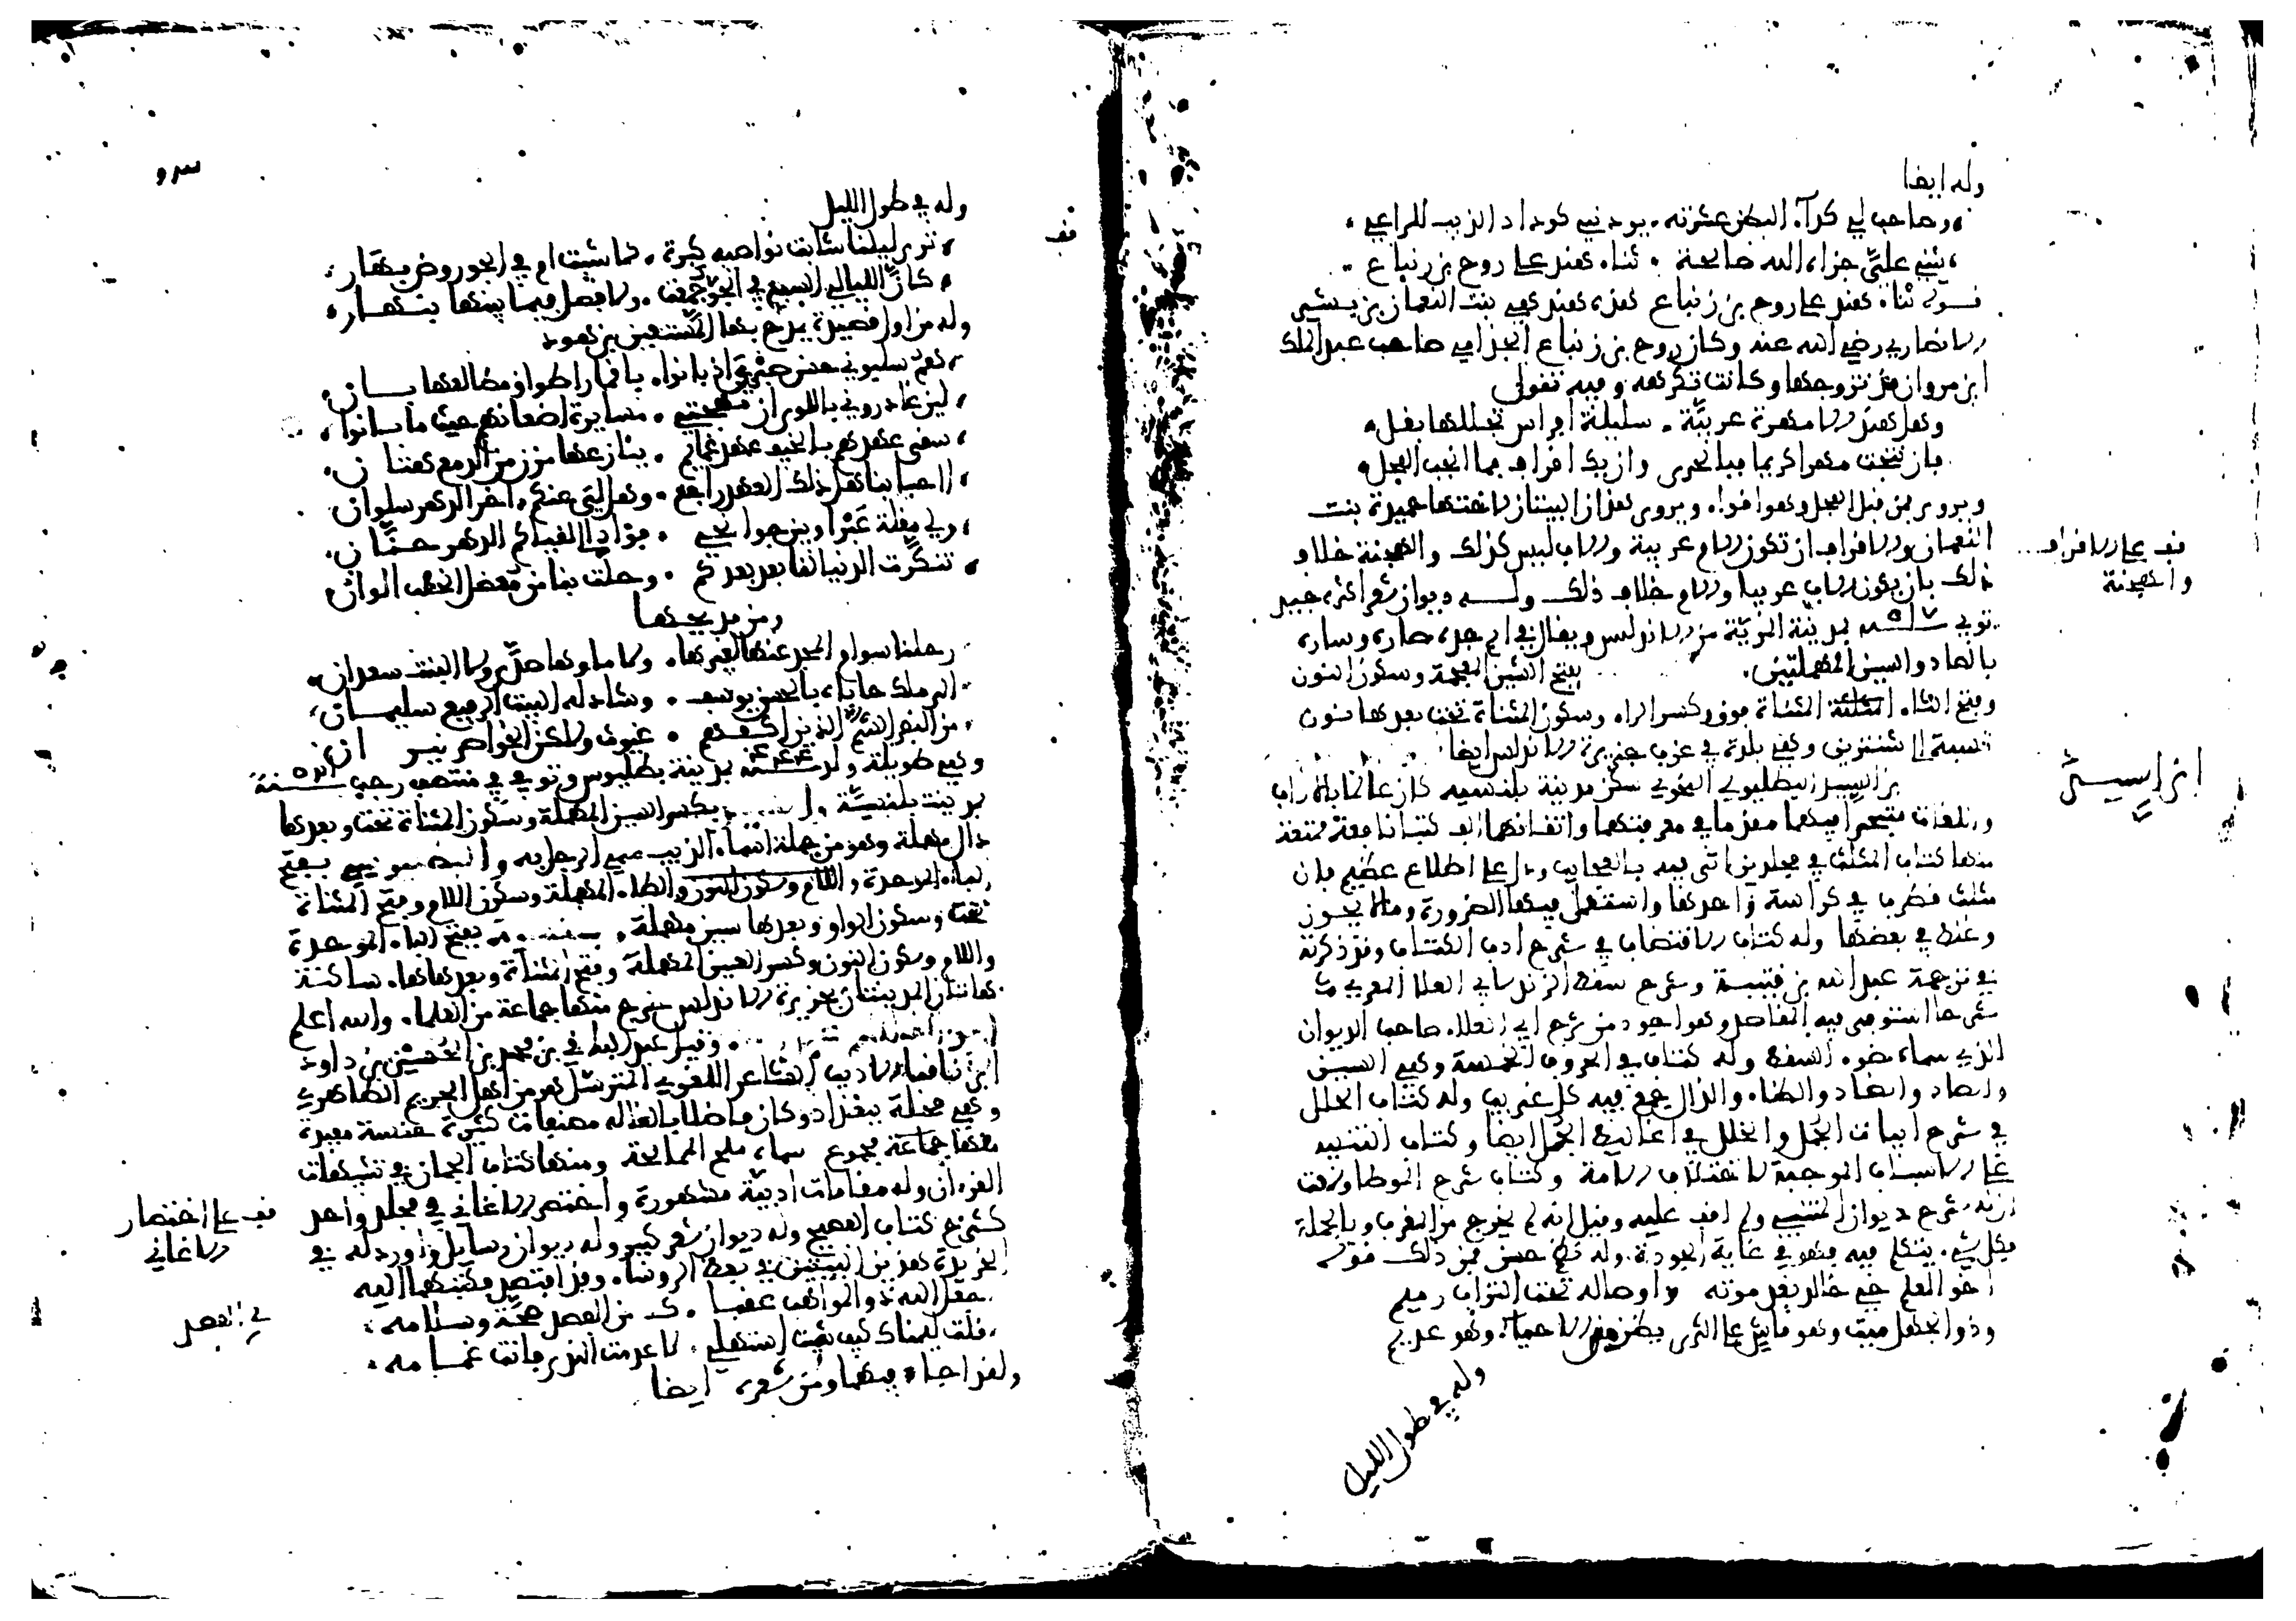 وله ايضا
وصاحب لي كداء البطن عشرته يودني كوداد الذيب للراعي
يثني علي جزاه الله صالحة ثناء هند على روح بن زنباع
قوله ثناء هند على روح بن زنباع هذه هند هي بنت النعمان بن بشير
الانصاري رضي الله عنه وكان روح بن زنباع الجذامي صاحب عبد الملك
ابن مروان قد تزوجها وكانت تكرهه وفيه تقول
وهل هند الا مهرة عربية سليلة افراس تجللها بغل
فان نتجت مهرا كريما فبالحرى وان يك اقراف فما انجب الفحل
ويروى فمن قبل الفحل وهو اقواء ويروى هذان البيتان لاختها حميدة بنت
النعمان والاقراف ان تكون الام عربية والاب ليس كذلك والهجنة خلاف
قف على الاقراف
والهجنة
ذلك بان يكون الاب عربيا والام خلاف ذلك وله ديوان شعر اكثره جيد
توفي سنة ٥١٧ بمدينة المرية من الاندلس ويقال في اسم جده صاره وساره
بالصاد والسين المهملتين بفتح الشين المعجمة وسكون النون
وفتح التاء المثناة فوق وكسر الراء وسكون المثناة تحت بعدها نون
نسبة الى شنترين وهي بلدة في غرب جزيرة الاندلس ايضا
ابن السيد
بن السيد البطليوسي النحوي سكن مدينة بلنسيه كان عالما بالاداب
واللغات متبحرا فيهما مقدما في معرفتهما واتقانهما الف كتبا نافعة ممتعة
منها كتاب المثلث في مجلدين اتى فيه بالعجايب ودل على اطلاع عظيم فان
مثلث قطرب في كراسة واحدة واستعمل فيها الضرورة وما لا يجوز
وغلط في بعضها وله كتاب الاقتضاب في شرح ادب الكتاب وقد ذكرته
في ترجمة عبد الله بن قتيبة وشرح سقط الزند لابي العلا المعري
شرحا استوفى فيه المقاصد وهو اجود من شرح ابي العلاء صاحب الديوان
الذي سماه ضوء السقط وله كتاب في الحروف الخمسة وهي السين
والصاد والضاد والطاء والذال جمع فيه كل غريب وله كتاب الحلل
في شرح ابيات الجمل والخلل في اغاليط الجمل ايضا وكتاب التنبيه
على الاسباب الموجبة لاختلاف الامة وكتاب شرح الموطا وسمعت
ان له شرح ديوان المتنبي ولم اقف عليه وقيل انه لم يخرج من المغرب وبالجملة
فكل شيء يتكلم فيه فهو في غاية الجودة وله نظم حسن فمن ذلك قوله
اخو العلم حي خالد بعد موته واوصاله تحت التراب رميم
وذو الجهل ميت وهو ماش على الثرى يظن من الاحياء وهو عديم
وله في طول الليل
وله في طول الليل
قف
ترى ليلنا شابت نواصيه كبرة كما شبت ام في الجو روض بهار
كان الليالي السبع في الجو جمعت ولا فصل فيما بينها بنهار
وله من اول قصيدة يمدح بها المستعين بن هود
هم سلبوني حسن صبري اذ بانوا باقمار اطواق مطالعها بان
لين غادروني باللوى ان مهجتي مسايرة اضعانهم حيث ما بانوا
سقى عهدهم بالخيف عهد غمايم ينازعها مزن من الدمع هتان
ااحبابنا هل ذلك العهد راجع وهل لي عنكم اخر الدهر سلوان
ولي مقلة عبرا وبين جوانحي فؤاد الى لقياكم الدهر حنان
تنكرت الدنيا لنا بعد بعدكم وحلت بنا من معضل الخطب الوان
ومن مديحها
رحلنا سوام الحمد عنها لغيرها ولا ماوها صدا ولا النبت سعدان
الى ملك حاباه بالحسن يوسف وشاد له البيت الرفيع سليمان
من النفر الشم الذين اكفهم غيوث ولاكن الخواطر نيران
وهي طويلة ولد سنة ٤٤٤ بمدينة بطليوس وتوفي في منتصف رجب سنة ٥٢١
بمدينة بلنسية بكسر السين المهملة وسكون المثناة تحت وبعدها
دال مهملة وهو من جملة اسماء الذيب سمي الرجل به والبطليوسي بفتح
الباء الموحدة والطاء المهملة وسكون اللام وفتح المثناة
تحت وسكون الواو وبعدها سين مهملة بفتح الباء الموحدة
واللام وسكون النون وكسر السين المهملة وفتح المثناة وبعدها هاء ساكنة
هاتان المدينتان بجزيرة الاندلس خرج منها جماعة من العلماء والله اعلم
وقيل عبد الباقي بن محمد بن الحسين بن داود
ابن ناقيا الاديب الشاعر اللغوي المترسل هو من اهل الحريم الطاهري
وهي محلة ببغداد وكان فاضلا بارعا له مصنفات كثيرة حسنة مفيدة
منها جماعة مجموع سماه ملح الممالحة ومنها كتاب الجمان في تشبيهات
القرءان وله مقامات ادبية مشهورة واختصر الاغاني في مجلد واحد
قف على اختصار
الاغاني
كشرح كتاب الفصيح وله ديوان شعر كبير وله ديوان رسايل واورد له في
الخريدة هذين البيتين في بعض الروساء وقد افتصد فكتبهما اليه
في الفصد
جعل الله ذو المواهب عقبا ك من الفصد صحة وسلامه
قلت ليمناك كيف شيت استهلي لا عدمت الندى فانت غمامه
ولقد اجاد فيهما ومن شعره ايضا